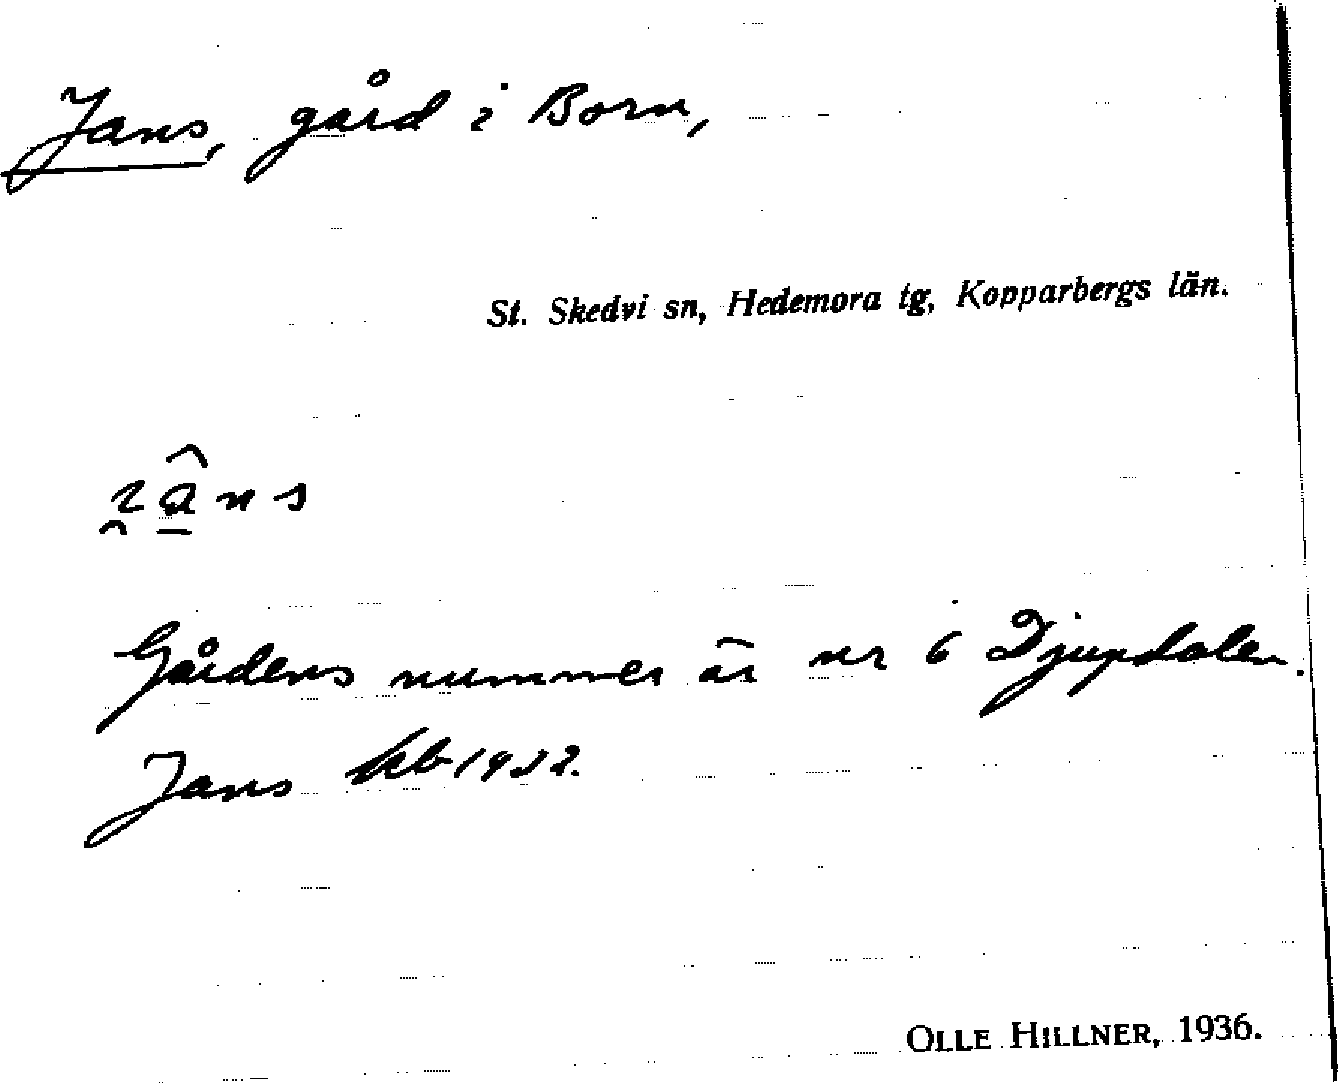 Jans, gård i Born,
St. Skedvi sn, Hedemora tg, Kopparbergs län.
i̯ȃ̱ns
Gårdens nummer är nr 6 Djupdalen.
Jans kb 1922.
OLLE HILLNER, 1936.